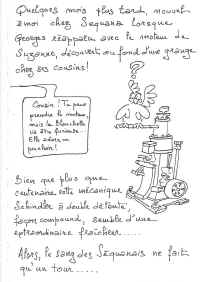 Quelques mois plus tard, nouvel
émoi chez Sequana lorsque
Georges réapparu avec le moteur de
Suzanne, découvert au fond d'une grange
chez ses cousins!
Cousin! Tu peux
prendre le moteur,
mais la Blanchette
va être furieuse.
Elle adore
Bien que plus que
centenaire cette mécanique
Schindler à double détente,
façon compound, semble d'une
extraordinaire fraîcheur.....
Alors, le sang des Séquanais ne fait
qu'un tour.....